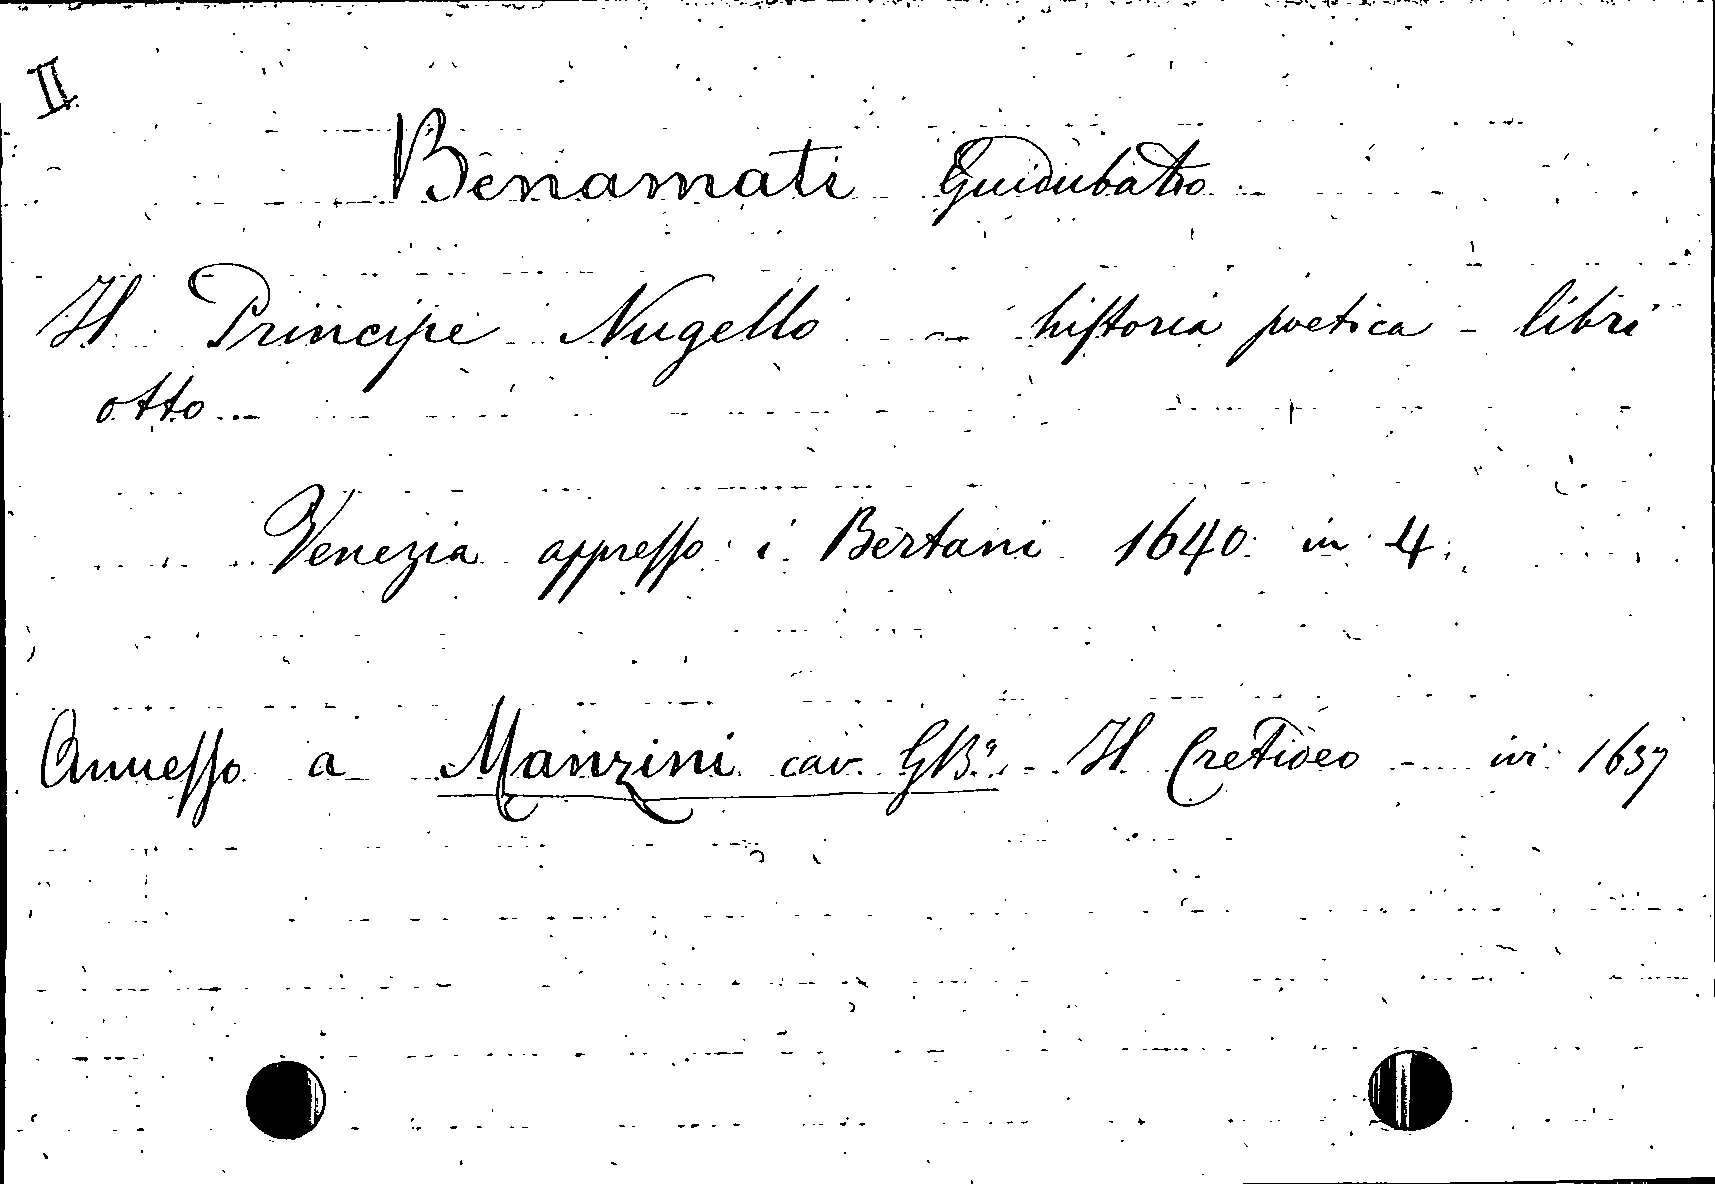 II
Benamati Guidubaldo
Il Principe Nugello - historia poetica - libri
otto -
Venezia appresso i Bertani 1640 in 4.
Annesso a Manzini cav. GBa. - Il Cretideo - ivi 1637